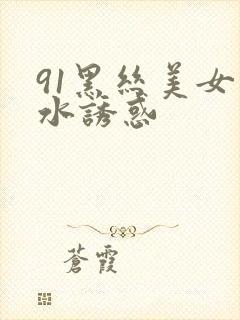 91黑丝美女
水誘惑
蒼霞